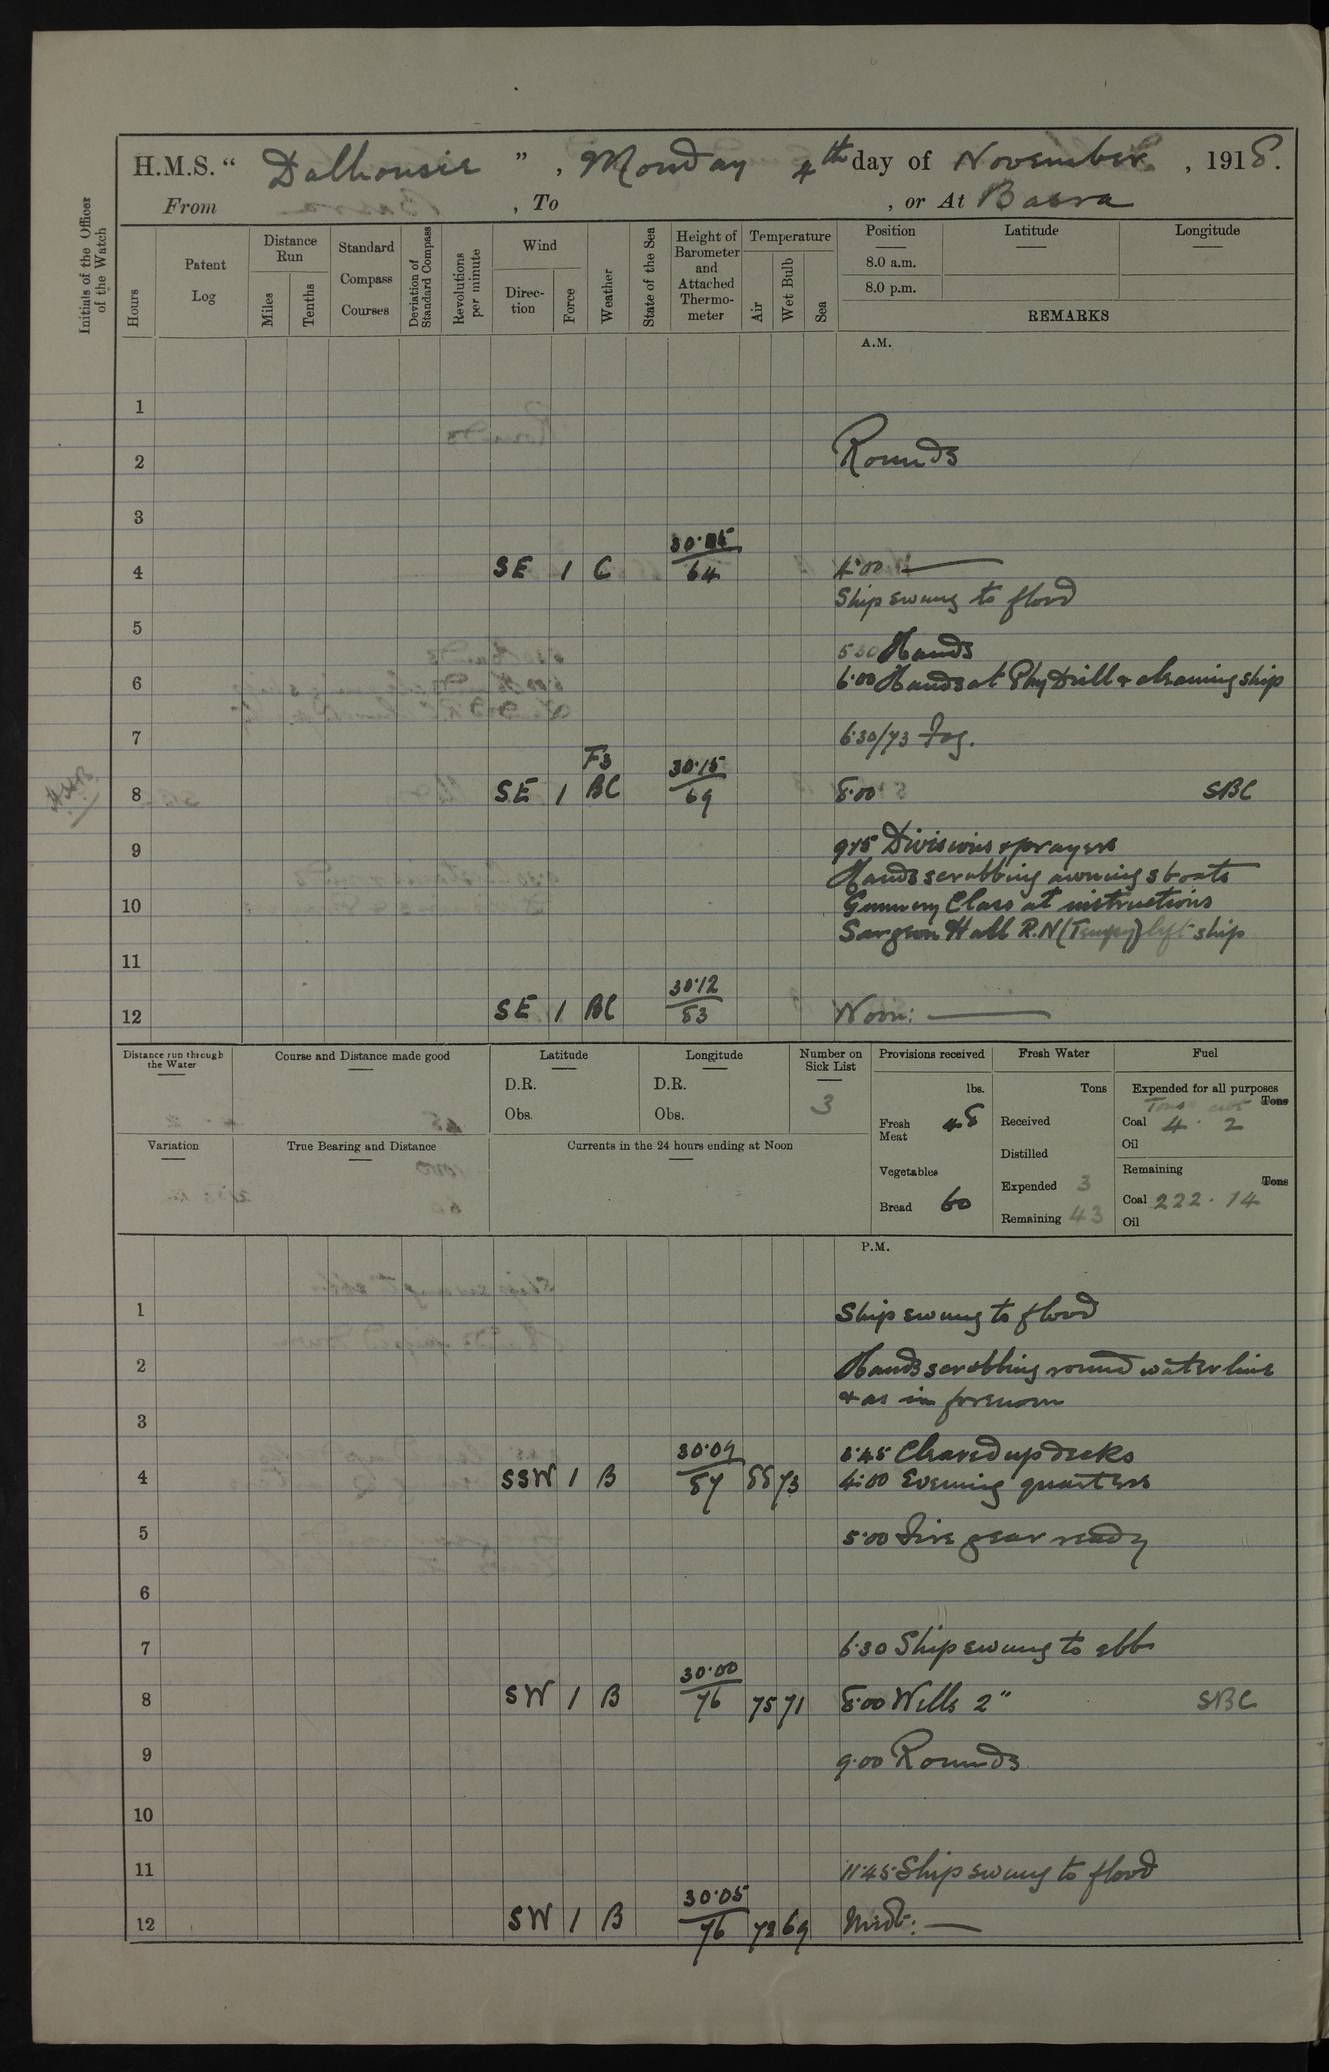 H.M.S. “ Dalhousie ” , Monday 4th day of November , 1918.
From , To , or At Basra
Initials of the Officer of the Watch
Hours
Patent Log
Distance Run
Miles
Tenths
Standard Compass Courses
Deviation of Standard Compass
Revolutions per minute
Wind
Direc- tion
Force
Weather
State of the Sea
Height of Barometer and Attached Thermo- meter
Temperature
Air
Wet Bulb
Sea
Position
8.0 a.m.
8.0 p.m.
Latitude
Longitude
REMARKS
A.M.
1
2 Rounds
3
4 SE 1 C 64 4.00
Ship swung to flood
5
5 30 Hands
6 6.00 Hands at Phy Drill & cleaning ship
7 6.30/73 Fog.
F3 30.15
8 SE 1 BC 69 8.00 SBC
9 9 15 Divisions & prayers
Hands scrubbing awnings & boats
10 Gunnery Class at instructions
Surgeon Hall R.N (Tempy) left ship
11
30.12
12 SE 1 BC 83 Noon:
Distance run through the Water
Course and Distance made good
Latitude
D.R.
Obs.
Longitude
D.R.
Obs.
Number on Sick List
3
Provisions received
lbs.
Fresh Meat 48
Vegetables
Bread 60
Fresh Water
Tons
Received
Distilled
Expended 3
Remaining 43
Fuel
Expended for all purposes
Tons cwt Tons
Coal 4 . 2
Oil
Remaining
Tons
Coal 222 . 14
Oil
Variation
True Bearing and Distance
Currents in the 24 hours ending at Noon
P.M.
1 Ship swung to flood
2 Hands scrubbing round waterline
& as in forenoon
3
30.09 3.45 Cleared up decks
4 SSW 1 B 87 88 73 4.00 Evening quarters
5 5.00 Fire gear ready
6
7 6.30 Ship swung to ebb
30.00
8 SW 1 B 76 75 71 8.00 Wells 2" SBC
9 9.00 Rounds
10
11 11.45 Ship swung to flood
30.05
12 SW 1 B 76 72 69 Midt: